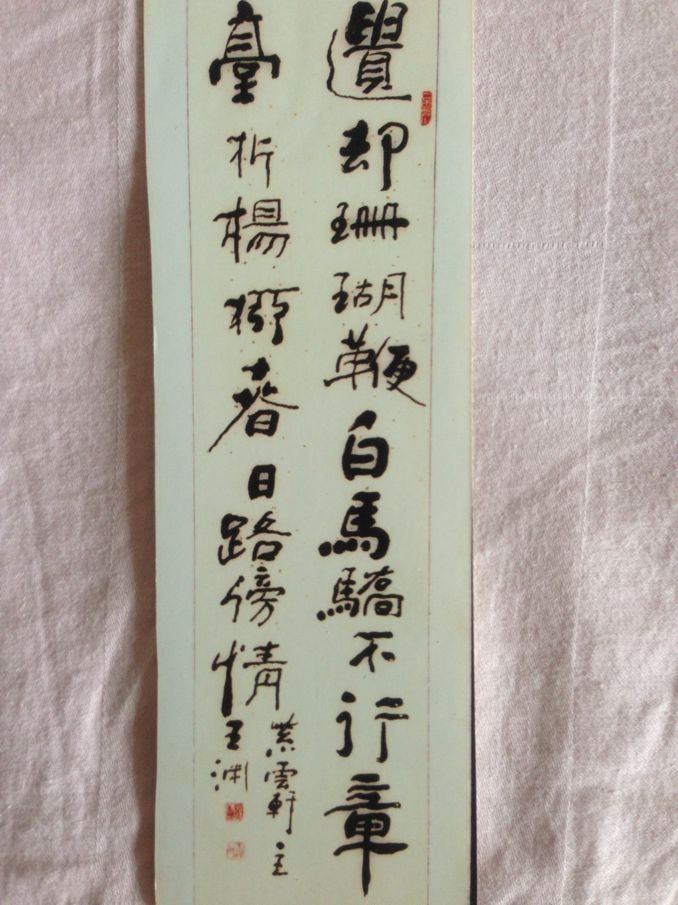 遺却珊瑚鞭白馬驕不行章
臺折楊柳春日路傍情
紫雲軒主
王渊